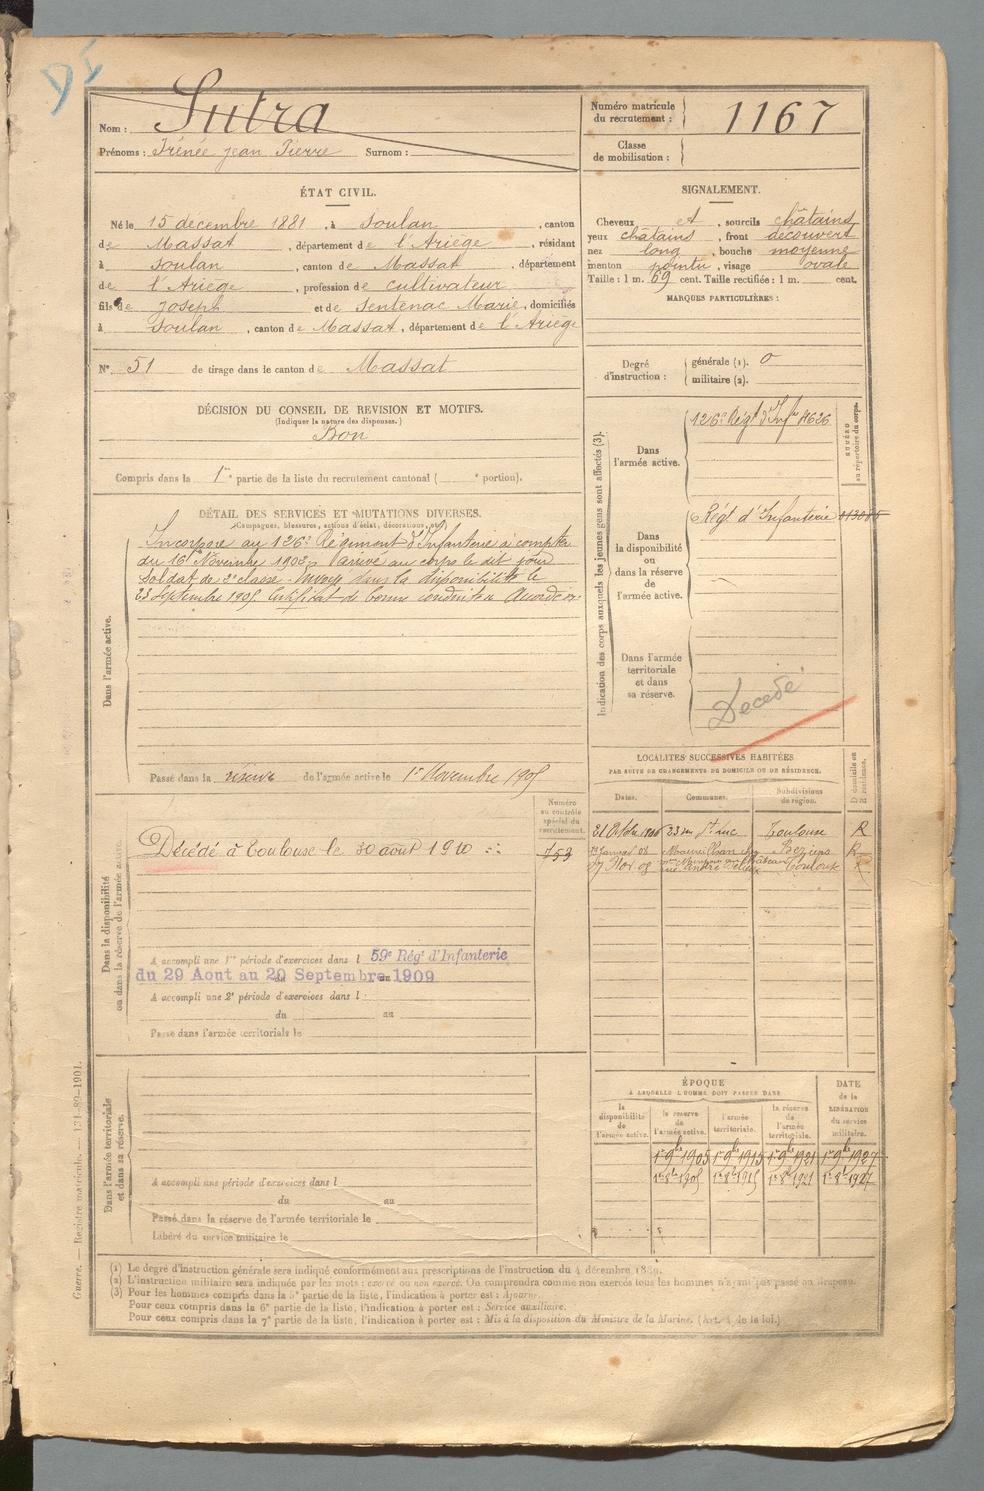 DI
Nom : Sutra
Prénoms : Irénée Jean Pierre Surnom :
Numéro matricule du recrutement : 1167
Classe de mobilisation :
ÉTAT CIVIL.
Né le 15 decembre 1881, à Soulan, canton
de Massat, département de l'Ariège, résidant
à Soulan, canton de Massat, département
de l'Ariège, profession de cultivateur
fils de Joseph et de Sentenac Marie, domiciliés
à Soulan, canton de Massat, département de l'Ariège
N° 51 de tirage dans le canton de Massat
SIGNALEMENT.
Cheveux et, sourcils châtains
yeux chatains, front découvert
nez long, bouche moyenne
menton pointu, visage ovale
Taille : 1 m. 69 cent. Taille rectifiée : 1 m. cent.
MARQUES PARTICULIÈRES :
Degré d'instruction : générale (1). 0
militaire (2).
DÉCISION DU CONSEIL DE REVISION ET MOTIFS.
(Indiquer la nature des dispenses.)
Bon
Compris dans la 1re partie de la liste du recrutement cantonal ( e portion).
DÉTAIL DES SERVICES ET MUTATIONS DIVERSES.
(Campagnes, blessures, actions d'éclat, décorations, etc.)
Dans l'armée active.
Incorporé au 126e Régiment d'Infanterie à compter
du 16 Novembre 1902, arrivé au corps le dit jour
Soldat de 2e classe. Envoyé dans la disponibilité le
23 Septembre 1905. Certificat de bonne conduite Accordé
Passé dans la réserve de l'armée active le 1er Novembre 1905
Indication des corps auxquels les jeunes gens sont affectés (3).
NUMÉRO au répertoire du corps.
Dans l'armée active.
126e Régt d'Infie 4626
Dans la disponibilité ou dans la réserve de l'armée active.
Régt d'Infanterie
Dans l'armée territoriale et dans sa réserve.
Décédé
Dans la disponibilité ou dans la réserve de l'armée active.
Numéro au contrôle spécial du recrutement.
Décédé à Toulouse le 30 août 1910
153
A accompli une 1re période d'exercices dans l 59e Régt d'Infanterie
du 29 Aout au 20 Septembre 1909
A accompli une 2e période d'exercices dans l
du au
Passé dans l'armée territoriale le
LOCALITÉS SUCCESSIVES HABITÉES
PAR SUITE DE CHANGEMENTS DE DOMICILE OU DE RÉSIDENCE.
Dates. Communes. Subdivisions de région. D domicile ou R résidence.
33 rue St Luc Toulouse R
Janvier 08 Beziers R
27 Nov 08 rue André Toulouse R
Dans l'armée territoriale et dans sa réserve.
A accompli une période d'exercices dans l
du au
Passé dans la réserve de l'armée territoriale le
Libéré du service militaire le
ÉPOQUE
À LAQUELLE L'HOMME DOIT PASSER DANS
DATE de la LIBÉRATION du service militaire.
la disponibilité de l'armée active. la réserve de l'armée active. l'armée territoriale. la réserve de l'armée territoriale.
1er 9bre 1905 1er 9bre 1915 1er 9bre 1921 1er 9bre 1927
1er 8bre 1905 1er 8bre 1915 1er 8bre 1921 1er 8bre 1927
(1) Le degré d'instruction générale sera indiqué conformément aux prescriptions de l'instruction du 4 décembre 1889.
(2) L'instruction militaire sera indiquée par les mots : exercé ou non exercé. On comprendra comme non exercés tous les hommes n'ayant pas passé au drapeau.
(3) Pour les hommes compris dans la 5e partie de la liste, l'indication à porter est : Ajourné.
Pour ceux compris dans la 6e partie de la liste, l'indication à porter est : Service auxiliaire.
Pour ceux compris dans la 7e partie de la liste, l'indication à porter est : Mis à la disposition du Ministre de la Marine. (Art. 4 de la loi.)
Guerre. — Registre matricule. — 131-89-1901.